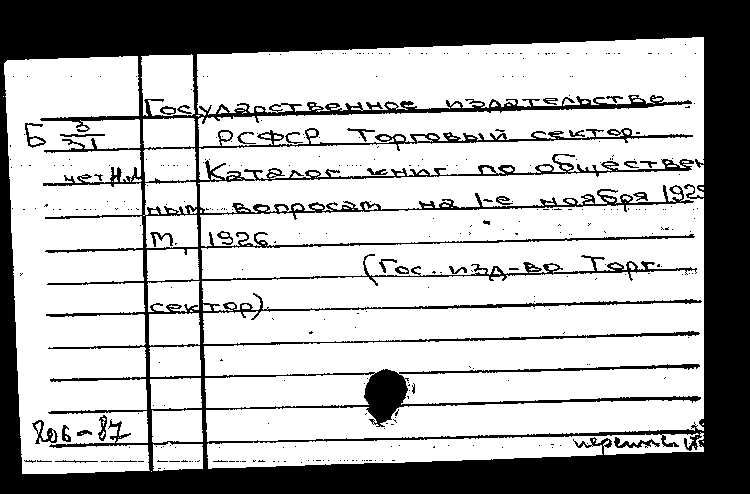 Государственное издательство
Б 3/31 РСФСР Торговый сектор.
нет Н.М. Каталог книг по обществен
ным вопросам на 1-е ноября 192
М, 1926.
(Гос. изд-во Торг.
сектор).
206-87